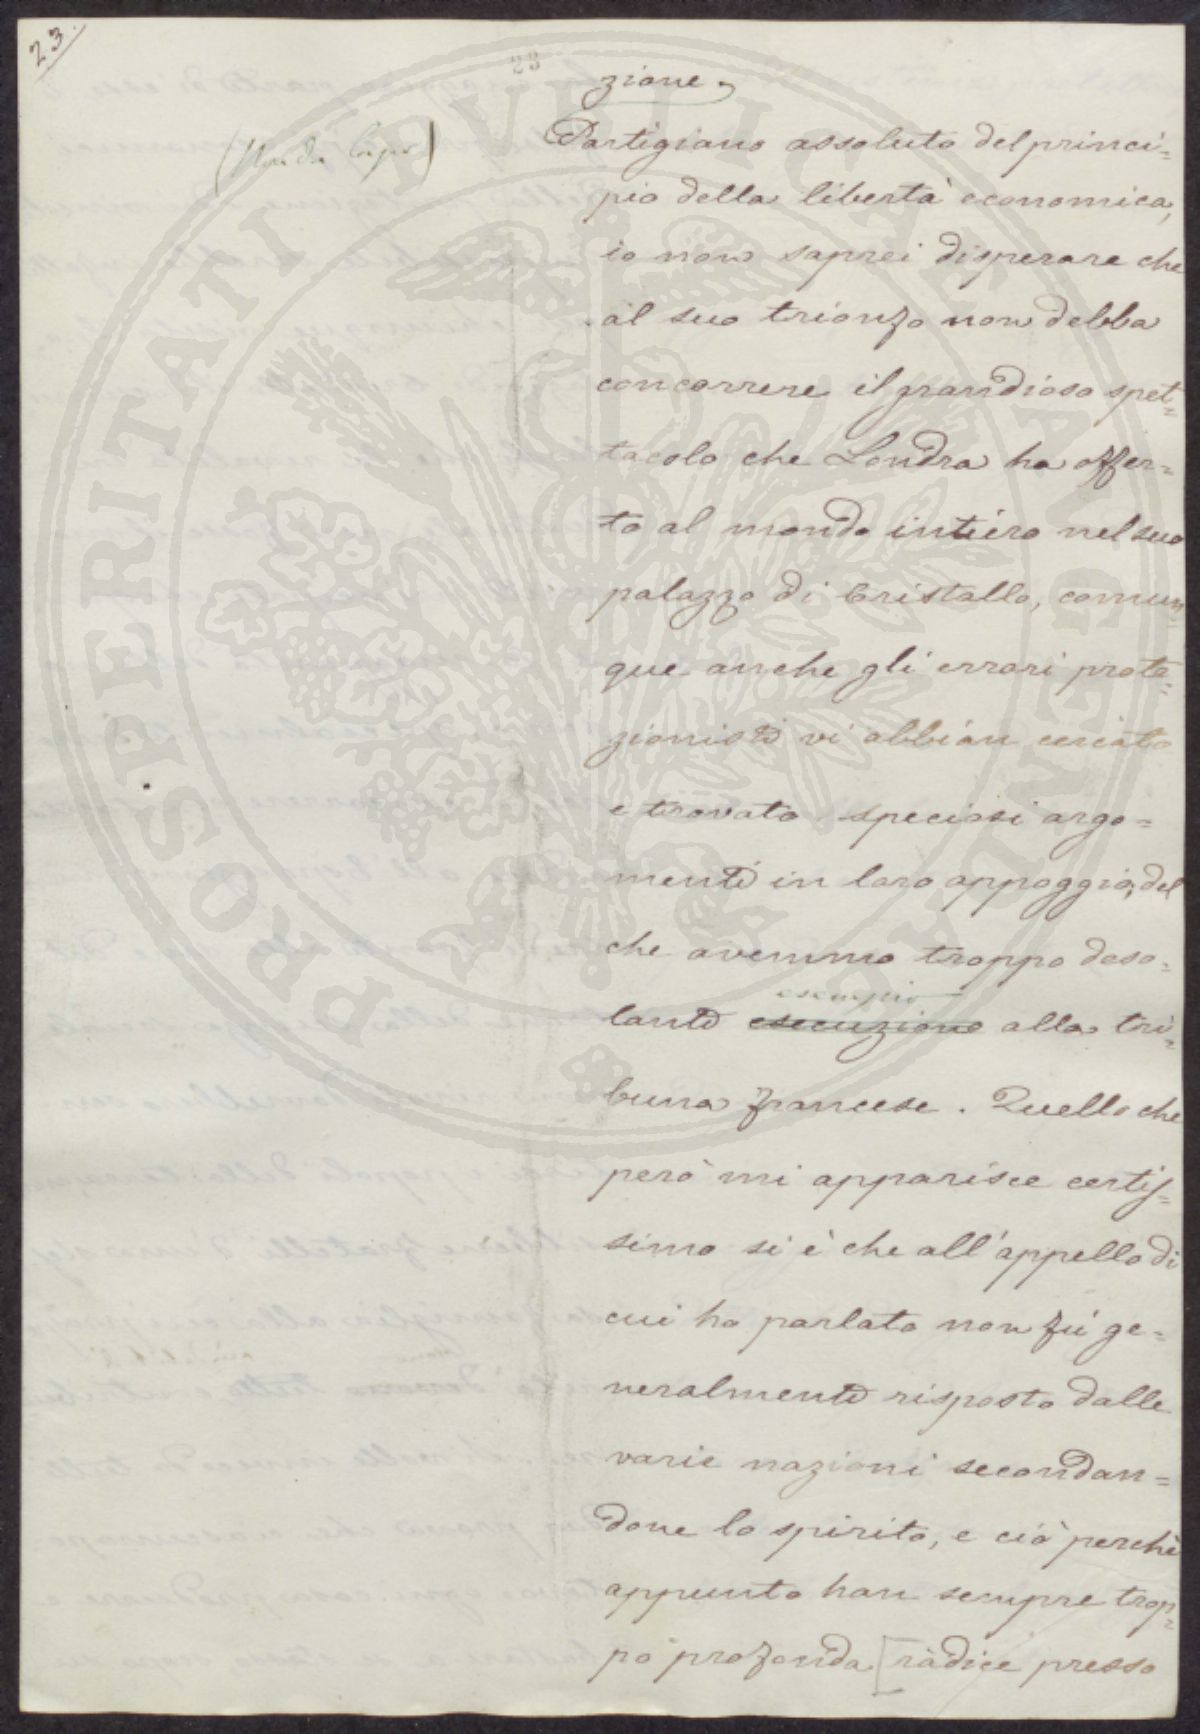 23.
23
zione.
(Non da capo)
Partigiano assoluto del princi=
pio della libertà economica,
io non saprei disperare che
al suo trionfo non debba
concorrere il grandioso spet=
tacolo che Londra ha offer=
to al mondo intièro nel suo
palazzo di Cristallo, comun=
que anche gli errori prote=
zionisti vi abbian cercato
e trovato speciosi argo=
menti in loro appoggio, del
che avemmo troppo deso=
esempio
lante esecuzione alla tri=
buna francese. Quello che
però mi apparisce certis=
simo si è che all'appello di
cui ho parlato non fù ge=
neralmente risposto dalle
varie nazioni secondan=
done lo spirito, e ciò perchè
appunto han sempre trop=
po profonda [radice presso
PROSPERITATI PVBLICAE AVGENDAE